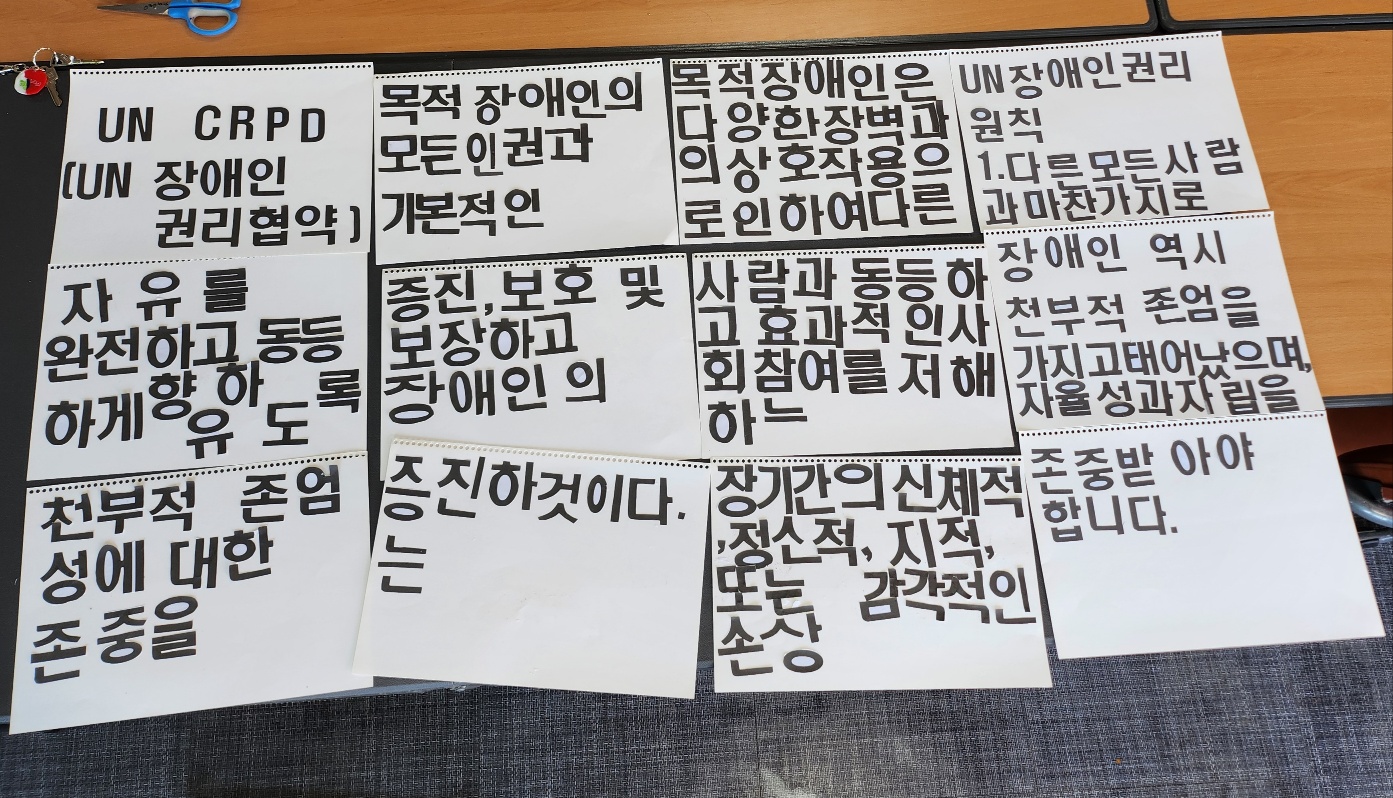 UN CRPD
(UN 장애인
권리협약)
목적 장애인의
모든인권과
기본적인
자유를
완전하고 동등
하게향하 록
유도
증진,보호 및
보장하고
장애인의
천부적 존엄
성에 대한
존중을
증진하것이다.
는
목적장애인은
다양한장벽과
의상호작용으
로인하여다른
사람과 동등하
고 효과적인사
회참여를 저해
하느
장기간의 신체적
,정신적, 지적,
또는 감각적인
손상
UN장애인권리
원칙
1.다른모든사람
과마찬가지로
장애인 역시
천부적 존엄을
가지고태어났으며,
자율성과자립을
존중받아야
합니다.